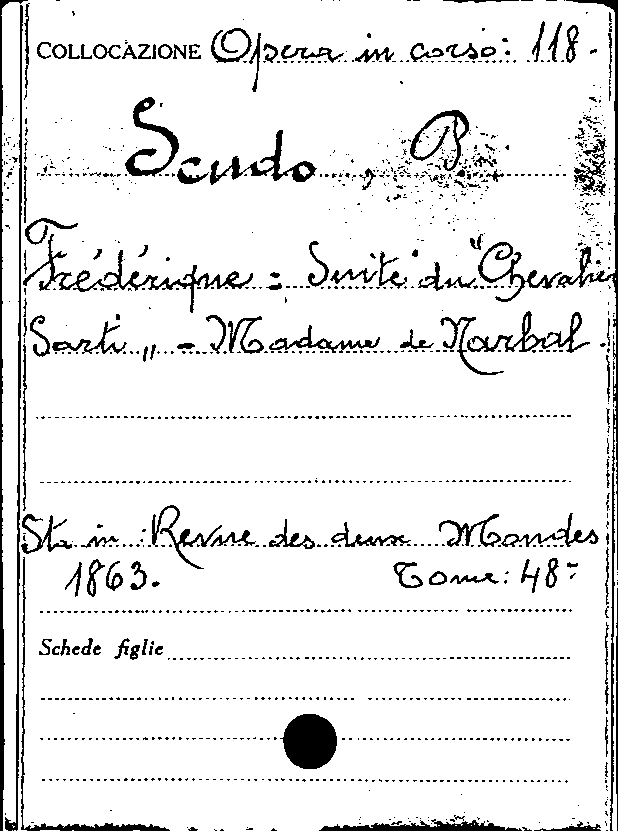 COLLOCAZIONE Opera in corso: 118.
Scudo, P.
Frédérique = Suite du "Chevalier
Sarti" - Madame de Narbal.
Sta in Revue des deux Mondes
1863. Tome: 48º
Schede figlie